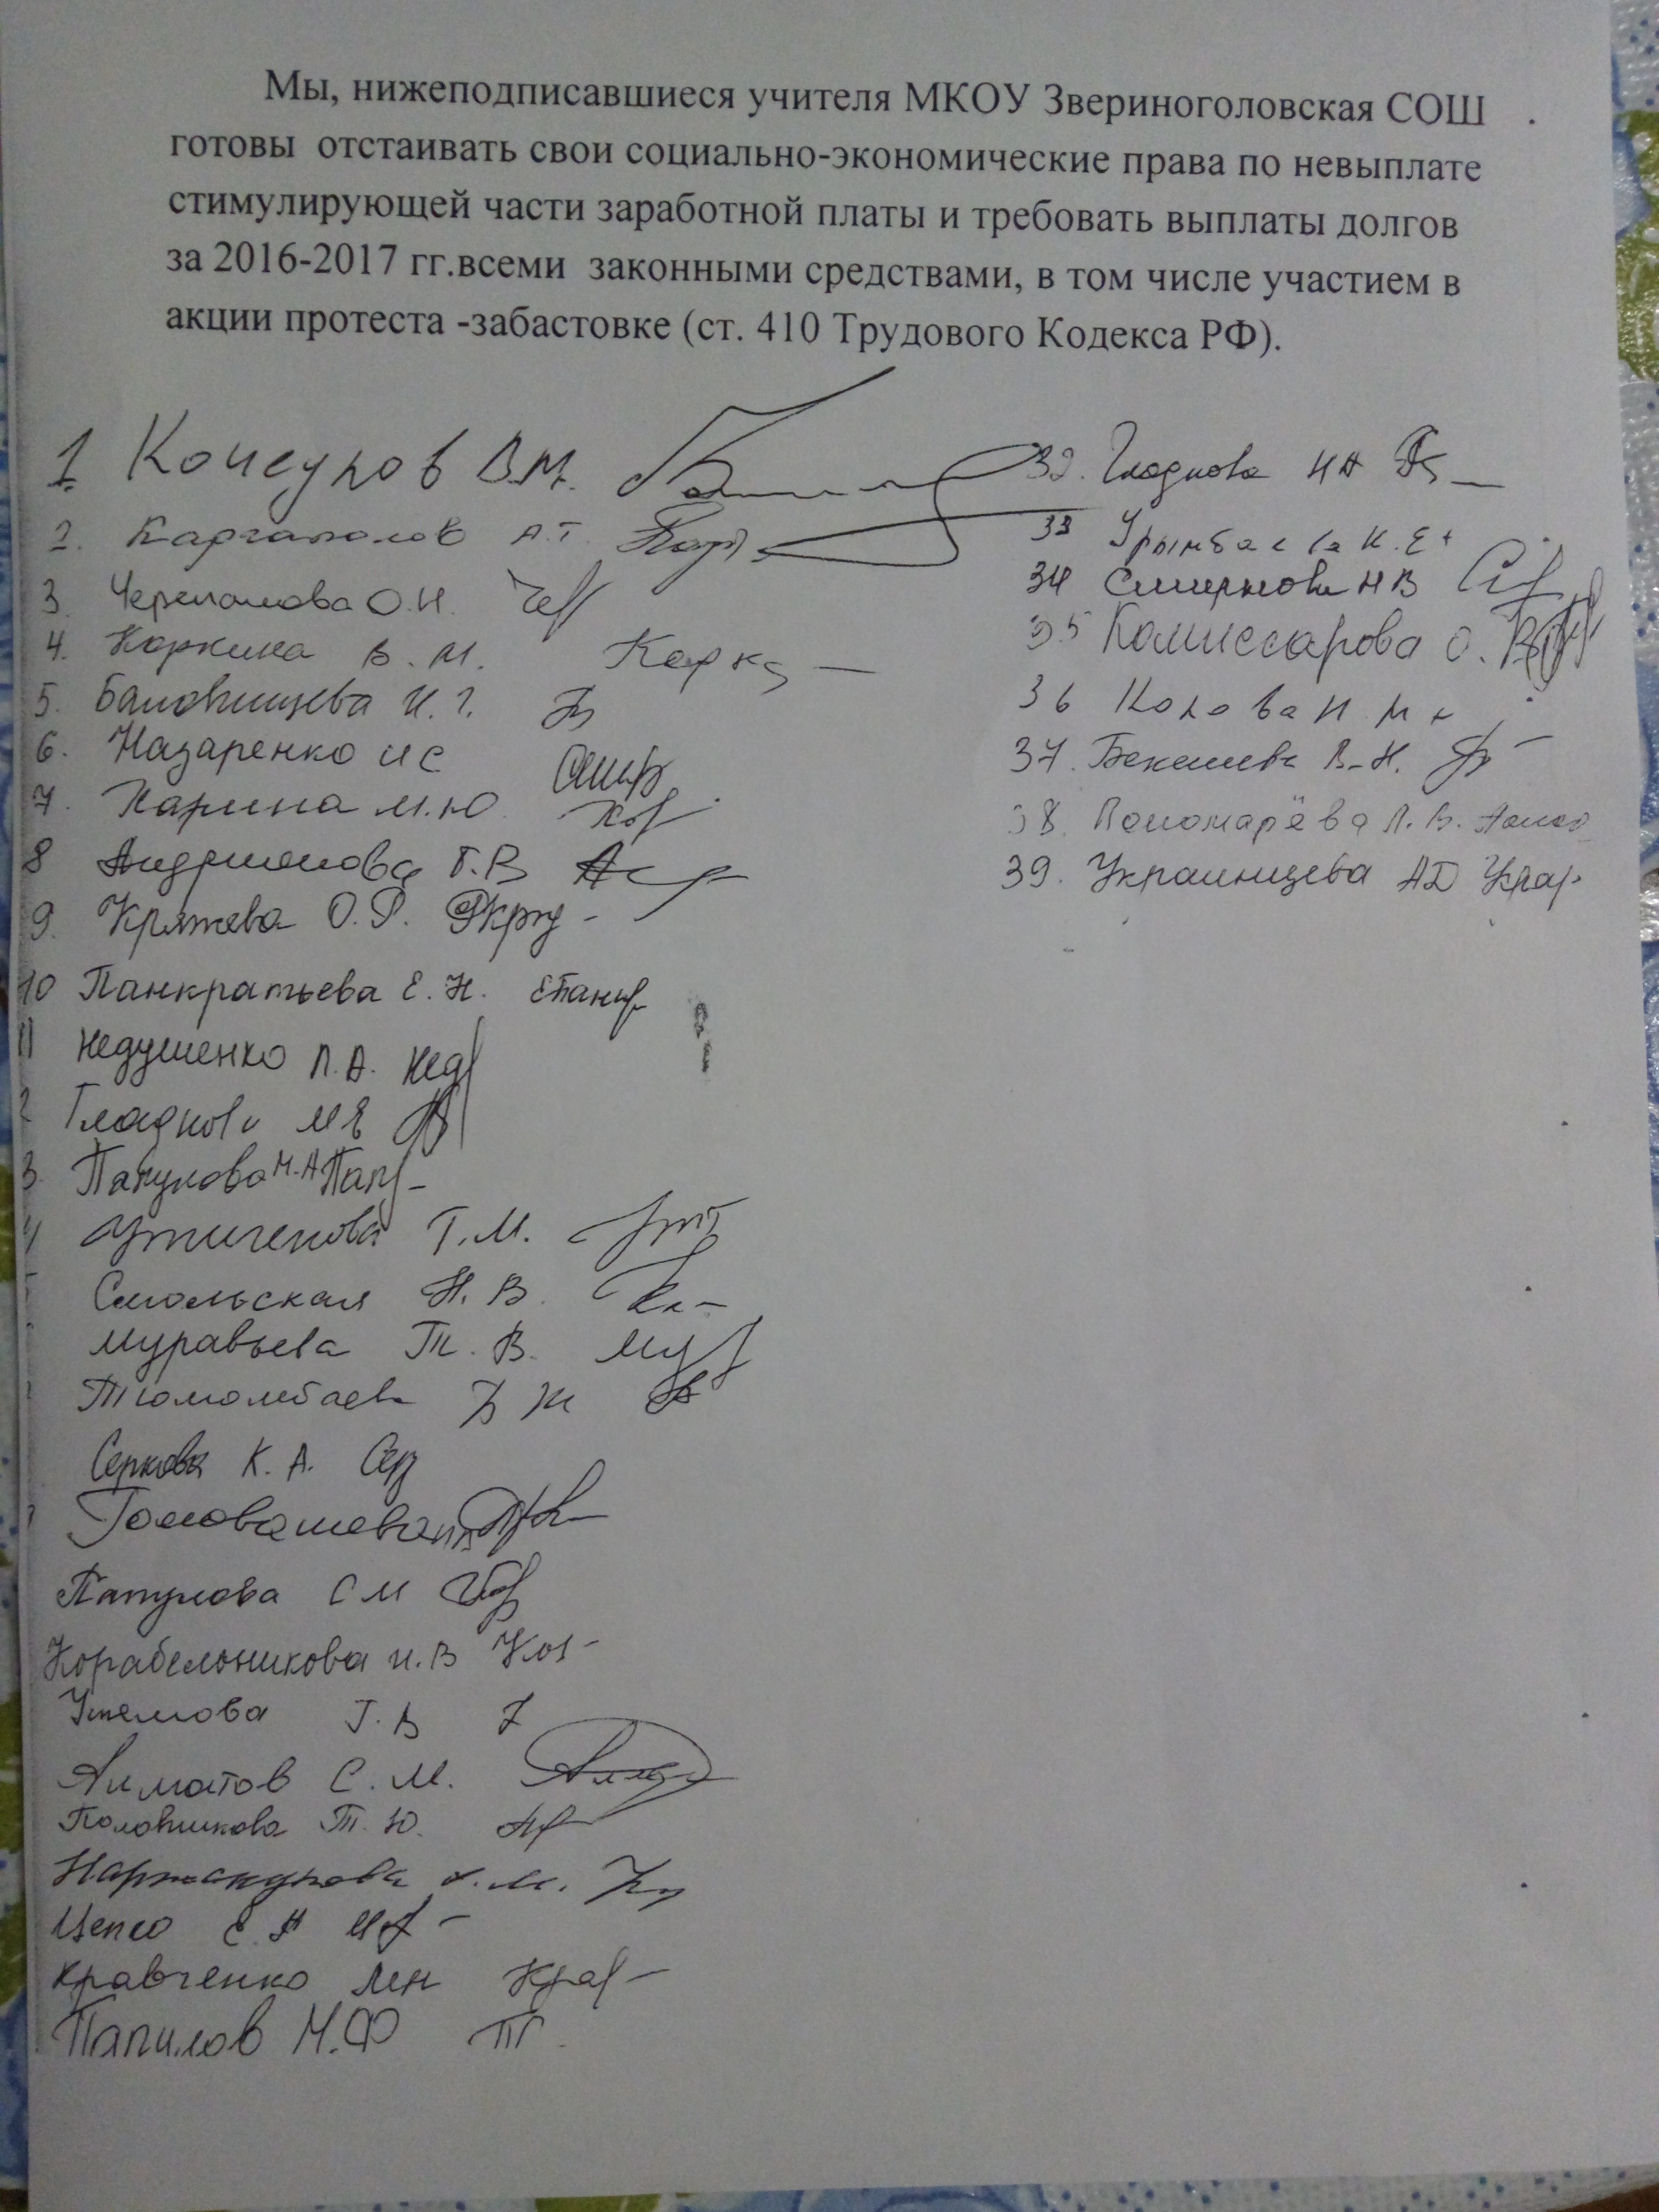 Мы, нижеподписавшиеся учителя МКОУ Звериноголовская СОШ
готовы отстаивать свои социально-экономические права по невыплате
стимулирующей части заработной платы и требовать выплаты долгов
за 2016-2017 гг.всеми законными средствами, в том числе участием в
акции протеста -забастовке (ст. 410 Трудового Кодекса РФ).
1 Кочегуров В.М.
2. Каргаполов А.Г.
3. Черепанова О.Н.
4. Коркина В.М.
5. И.Г.
6. Назаренко И С
7. Карина М.Ю
8 Андрианова Г.В
9. Кряжева О.Р.
10 Панкратьева Е.Н.
11 Недушенко Л.А. Нед
2 Гладков М Е
3 Папулова Н.А Пап
4 Т.М.
Смольская Н.В.
Муравьева Т.В. Му
Серкова К.А. Сер
Папулова С М
Корабельникова И.В
Утемова Г.В
Алматов С.М.
Половникова Т.Ю.
Цепко Е.Н
Кравченко Крав
Папилов Н.Ф
32. Гладкова Н А
33 К.Е
34 Смирнова Н В
35 Комиссарова О.В
36 Н М
37. Бекишева В.Н.
38. Пономарёва Л.В.
39. Украинцева А Д Укра